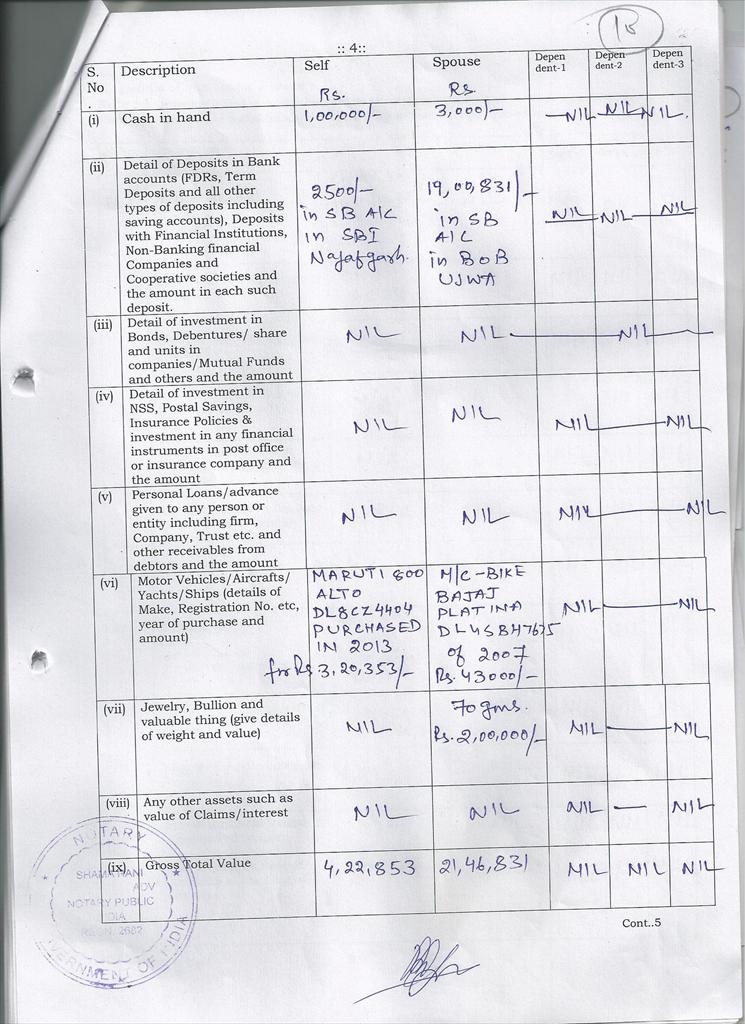 1B
:: 4::
S. No . Description Self Rs. Spouse Rs. Depen dent-1 Depen dent-2 Depen dent-3
(i) Cash in hand 1,00,000/- 3,000/- NIL NIL NIL.
(ii) Detail of Deposits in Bank
accounts (FDRs, Term
Deposits and all other
types of deposits including
saving accounts), Deposits
with Financial Institutions,
Non-Banking financial
Companies and
Cooperative societies and
the amount in each such
deposit.
2500/-
in SB A/C
in SBI
Najafgarh.
19,00,831/-
in SB
A/C
in BOB
UJWA
NIL NIL NIL
(iii) Detail of investment in
Bonds, Debentures/ share
and units in
companies/Mutual Funds
and others and the amount
NIL NIL NIL
(iv) Detail of investment in
NSS, Postal Savings,
Insurance Policies &
investment in any financial
instruments in post office
or insurance company and
the amount
NIL NIL NIL NIL
(v) Personal Loans/advance
given to any person or
entity including firm,
Company, Trust etc. and
other receivables from
debtors and the amount
NIL NIL NIL NIL
(vi) Motor Vehicles/Aircrafts/
Yachts/Ships (details of
Make, Registration No. etc,
year of purchase and
amount)
MARUTI 800
ALTO
DL8CZ4404
PURCHASED
IN 2013
for Rs. 3,20,353/-
M/C-BIKE
BAJAJ
PLATINA
DL4SBH7675
of 2007
Rs. 43000/-
NIL NIL
(vii) Jewelry, Bullion and
valuable thing (give details
of weight and value)
NIL
70 gms.
Rs. 2,00,000/-
NIL NIL
(viii) Any other assets such as
value of Claims/interest
NIL NIL NIL NIL
(ix) Gross Total Value 4,22,853 21,46,831 NIL NIL NIL
NOTARY
SHAMA RANI
ADV
NOTARY PUBLIC
2682
GOVERNMENT OF INDIA
Cont..5